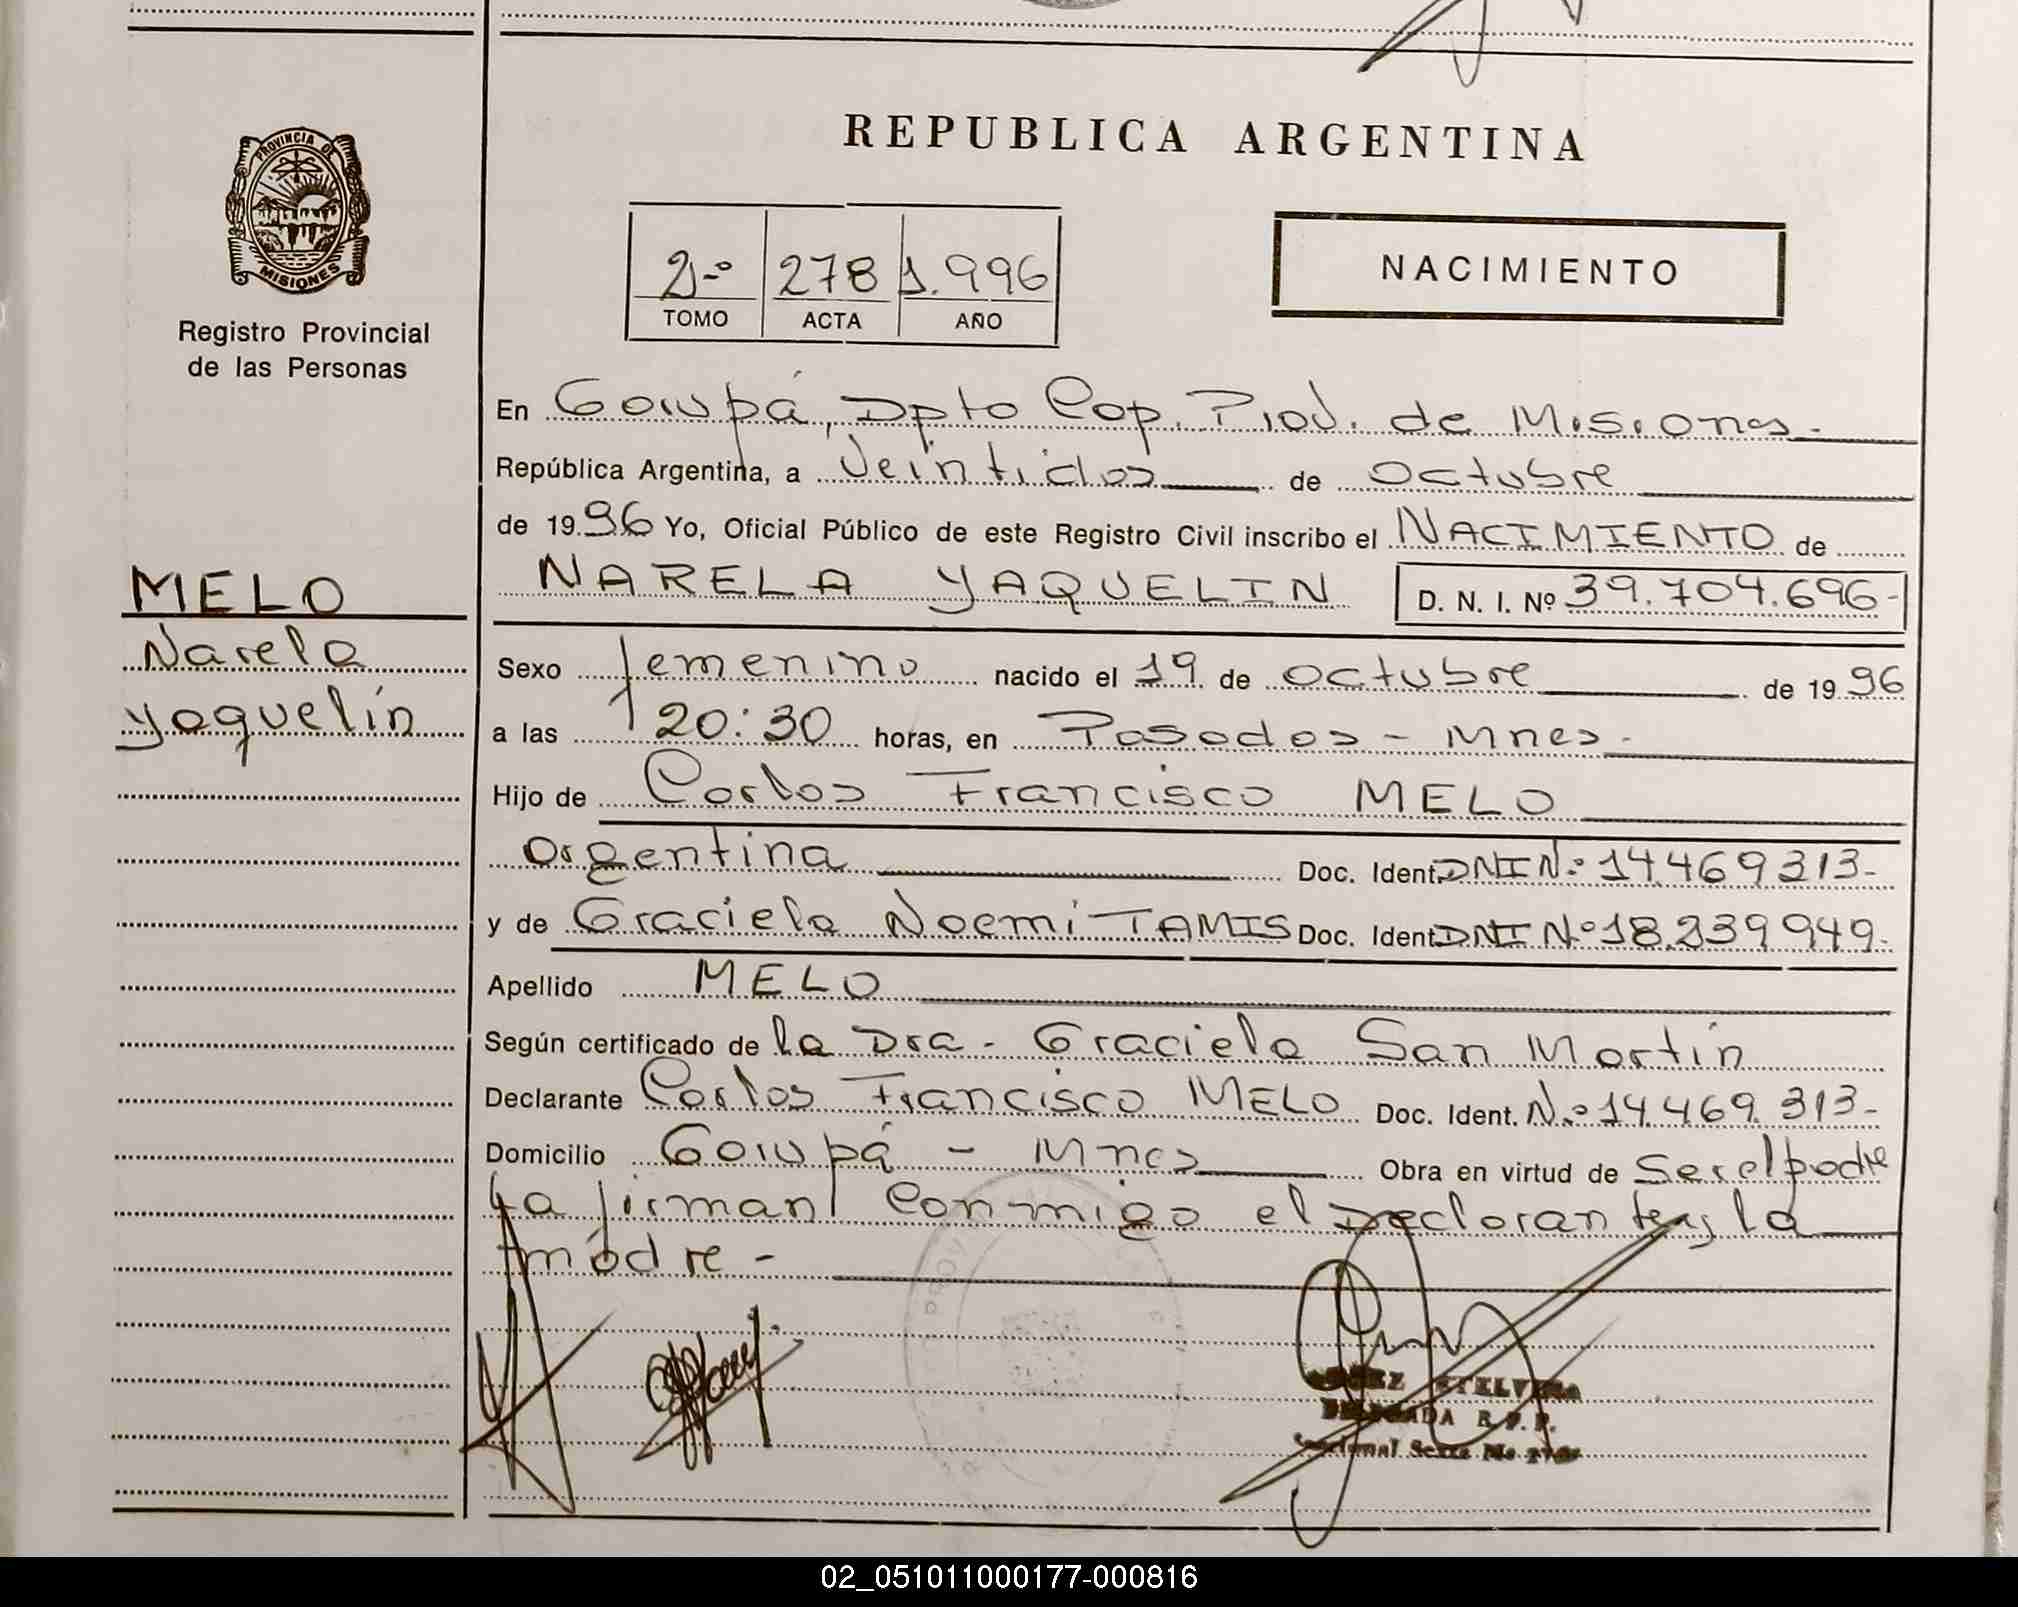 REPUBLICA ARGENTINA
PROVINCIA DE
MISIONES
Registro Provincial
de las Personas
2.º 278 1.996
TOMO ACTA AÑO
NACIMIENTO
MELO
Narela
Yaquelin
En Garupá, Dpto Cap. Prov. de Misiones.-
República Argentina, a Veintidos de octubre
de 19 96 Yo, Oficial Público de este Registro Civil inscribo el NACIMIENTO de
NARELA YAQUELIN D. N. I. Nº 39.704.696-
Sexo femenino nacido el 19 de octubre de 19 96
a las 20:30 horas, en Posadas - Mnes.-
Hijo de Carlos Francisco MELO
argentina Doc. Ident. DNI Nº 14.469.313-
y de Graciela Noemi TAMIS Doc. Ident. DNI Nº 18.239.949-
Apellido MELO
Según certificado de la Dra. Graciela San Martín
Declarante Carlos Francisco MELO Doc. Ident. Nº 14.469.313-
Domicilio Garupá - Mnes Obra en virtud de Ser el padre
La firman conmigo el Declarante y la
madre -
ETELVINA
DELEGADA R.P.P.
02_051011000177-000816